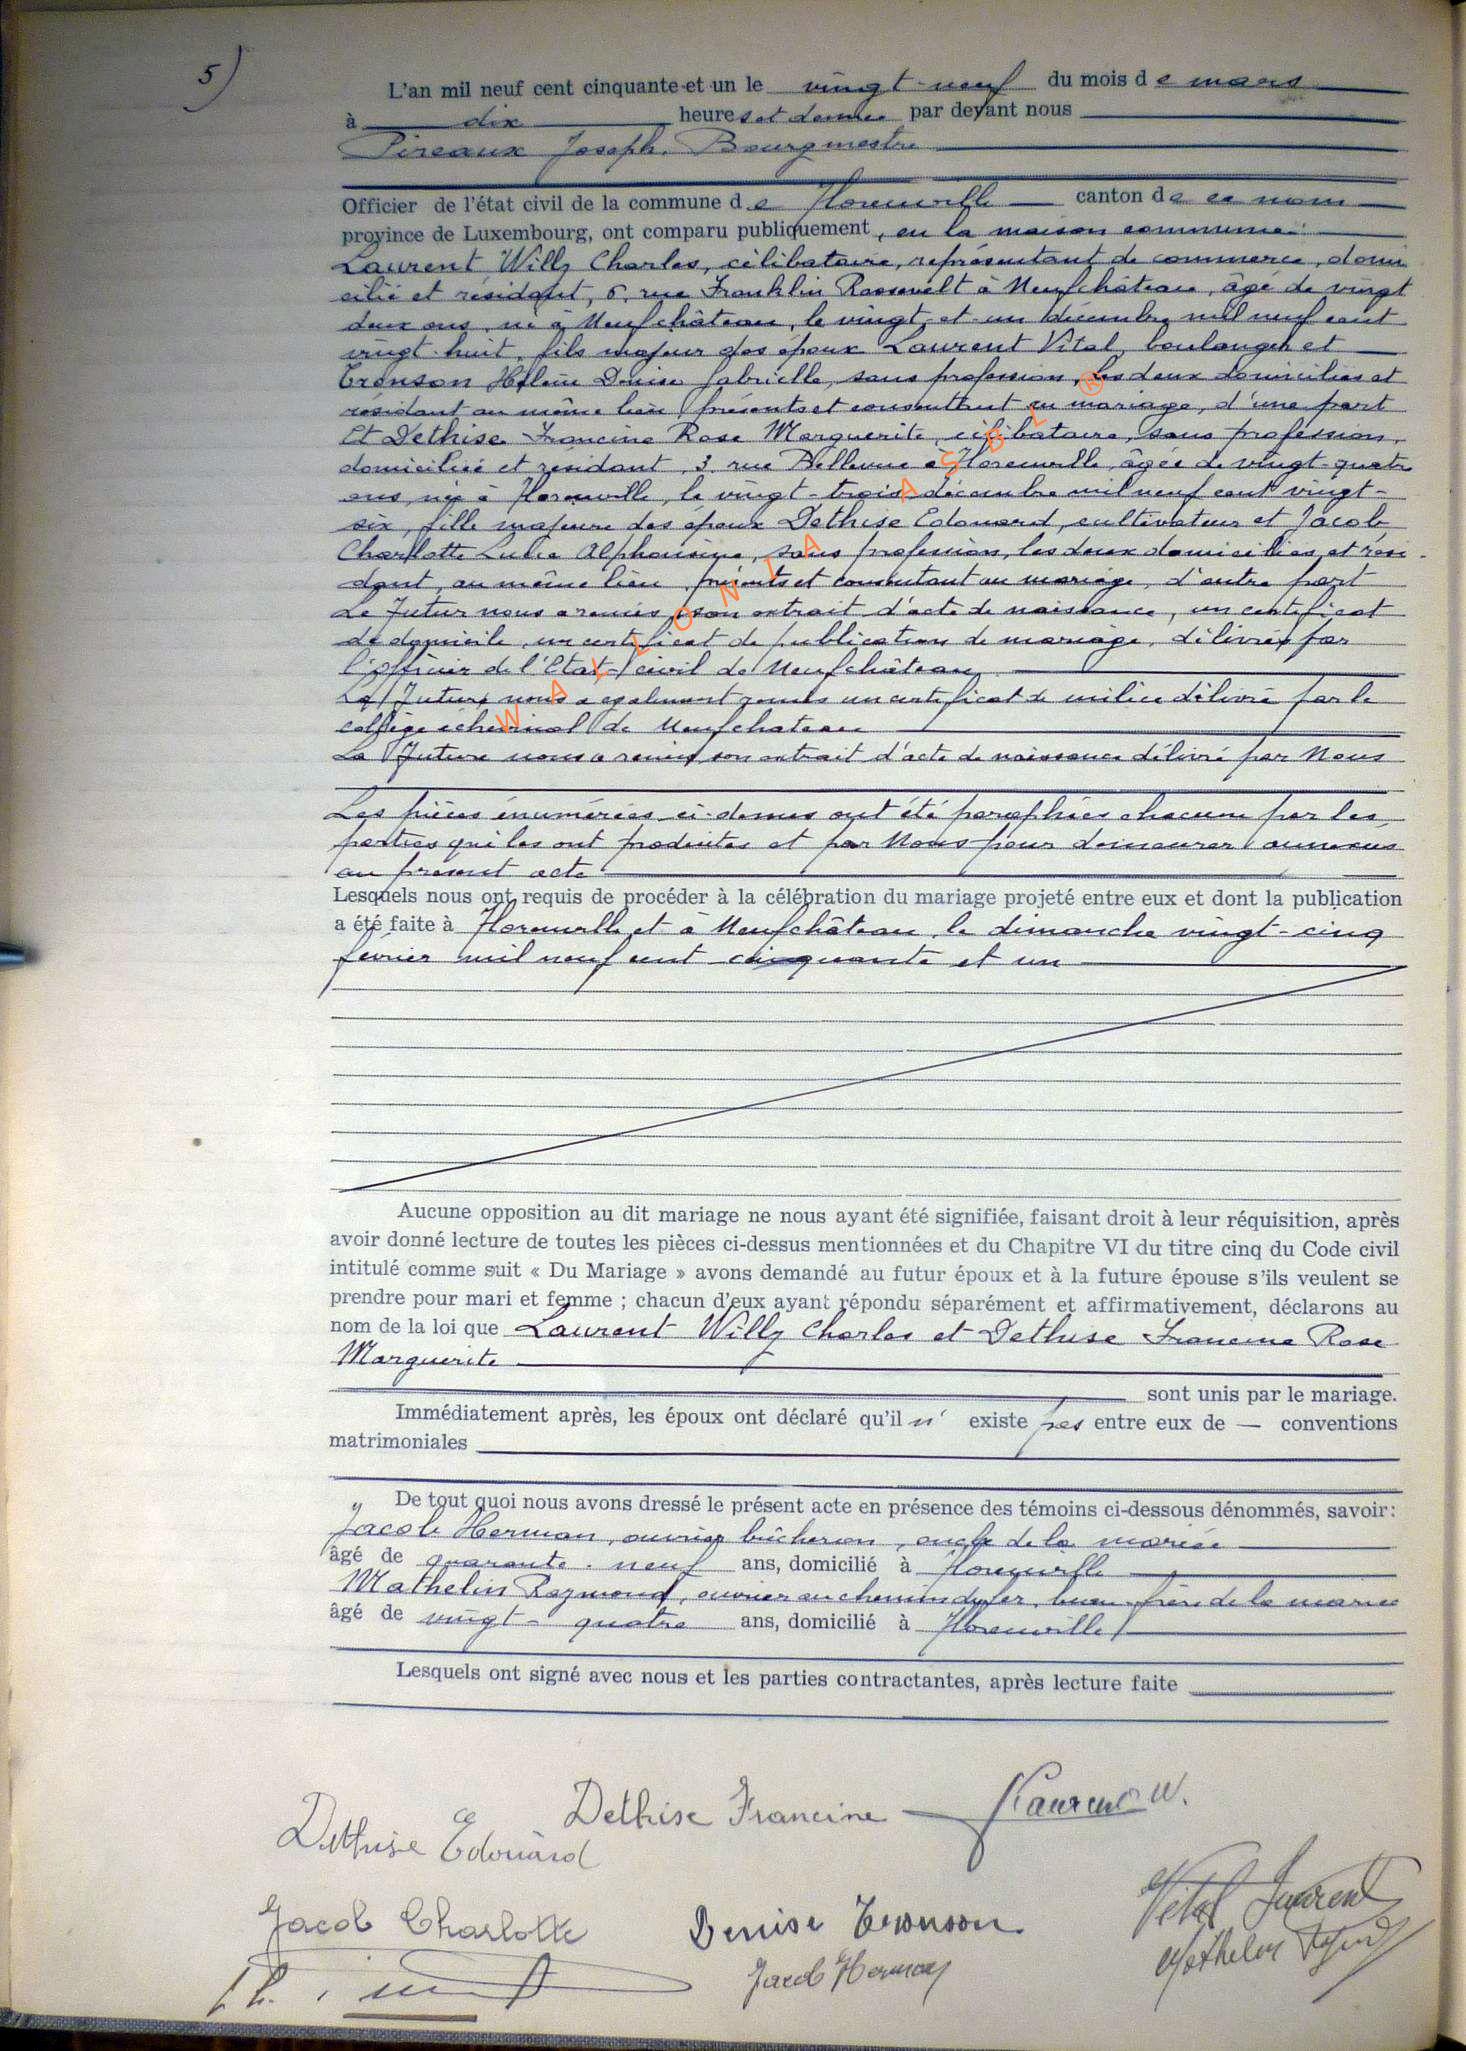 5)
L'an mil neuf cent cinquante et un le vingt-neuf du mois de mars
à dix heures et demie par devant nous
Pireaux Joseph, Bourgmestre
Officier de l'état civil de la commune de Florenville canton de ce nom
province de Luxembourg, ont comparu publiquement, en la maison communale:
Laurent Willy Charles, célibataire, représentant de commerce, domi
cilié et résidant, 6, rue Franklin Roosevelt à Neufchâteau, âgé de vingt
deux ans, né à Neufchâteau, le vingt-et-un décembre mil neuf cent
vingt-huit, fils majeur des époux Laurent Vital, boulanger et
Tronson Hélène Denise Gabrielle, sans profession, les deux domiciliés et
résidant au même lieu, présents et consentant au mariage, d'une part
Et Dethise Francine Rose Marguerite, célibataire, sans profession,
domiciliée et résidant, 3, rue Bellevue à Florenville, âgée de vingt-quatre
ans, née à Florenville, le vingt-trois décembre mil neuf cent vingt-
six, fille majeure des époux Dethise Edouard, cultivateur et Jacob
Charlotte Lucie Alphonsine, sans profession, les deux domiciliés et rési-
dant, au même lieu, présents et consentant au mariage, d'autre part
Le Futur nous a remis, son extrait d'acte de naissance, un certificat
de domicile, un certificat de publication de mariage, délivrés par
l'Officier de l'Etat-civil de Neufchâteau
Le Futur nous a également remis un certificat de milice délivré par le
collège échevinal de Neufchateau
La Future nous a remis, son extrait d'acte de naissance délivré par Nous
Les pièces énumérées ci-dessus ont été paraphées chacune par les
parties qui les ont produites et par Nous pour demeurer annexées
au présent acte
Lesquels nous ont requis de procéder à la célébration du mariage projeté entre eux et dont la publication
a été faite à Florenville et à Neufchâteau, le dimanche vingt-cinq
février mil neuf cent cinquante et un
Aucune opposition au dit mariage ne nous ayant été signifiée, faisant droit à leur réquisition, après
avoir donné lecture de toutes les pièces ci-dessus mentionnées et du Chapitre VI du titre cinq du Code civil
intitulé comme suit « Du Mariage » avons demandé au futur époux et à la future épouse s'ils veulent se
prendre pour mari et femme ; chacun d'eux ayant répondu séparément et affirmativement, déclarons au
nom de la loi que Laurent Willy Charles et Dethise Francine Rose
Marguerite
sont unis par le mariage.
Immédiatement après, les époux ont déclaré qu'il n' existe pas entre eux de — conventions
matrimoniales
De tout quoi nous avons dressé le présent acte en présence des témoins ci-dessous dénommés, savoir:
Jacob Herman, ouvrier bûcheron, oncle de la mariée
âgé de quarante-neuf ans, domicilié à Florenville
Mathelin Raymond, ouvrier au chemin de fer, beau-frère de la mariée
âgé de vingt-quatre ans, domicilié à Florenville
Lesquels ont signé avec nous et les parties contractantes, après lecture faite
Dethise Francine Laurent W.
Dethise Edouard
Vital Laurent
Jacob Charlotte Denise Tronson
Mathelin
Jacob Herman
WALLONIA ASBL ®